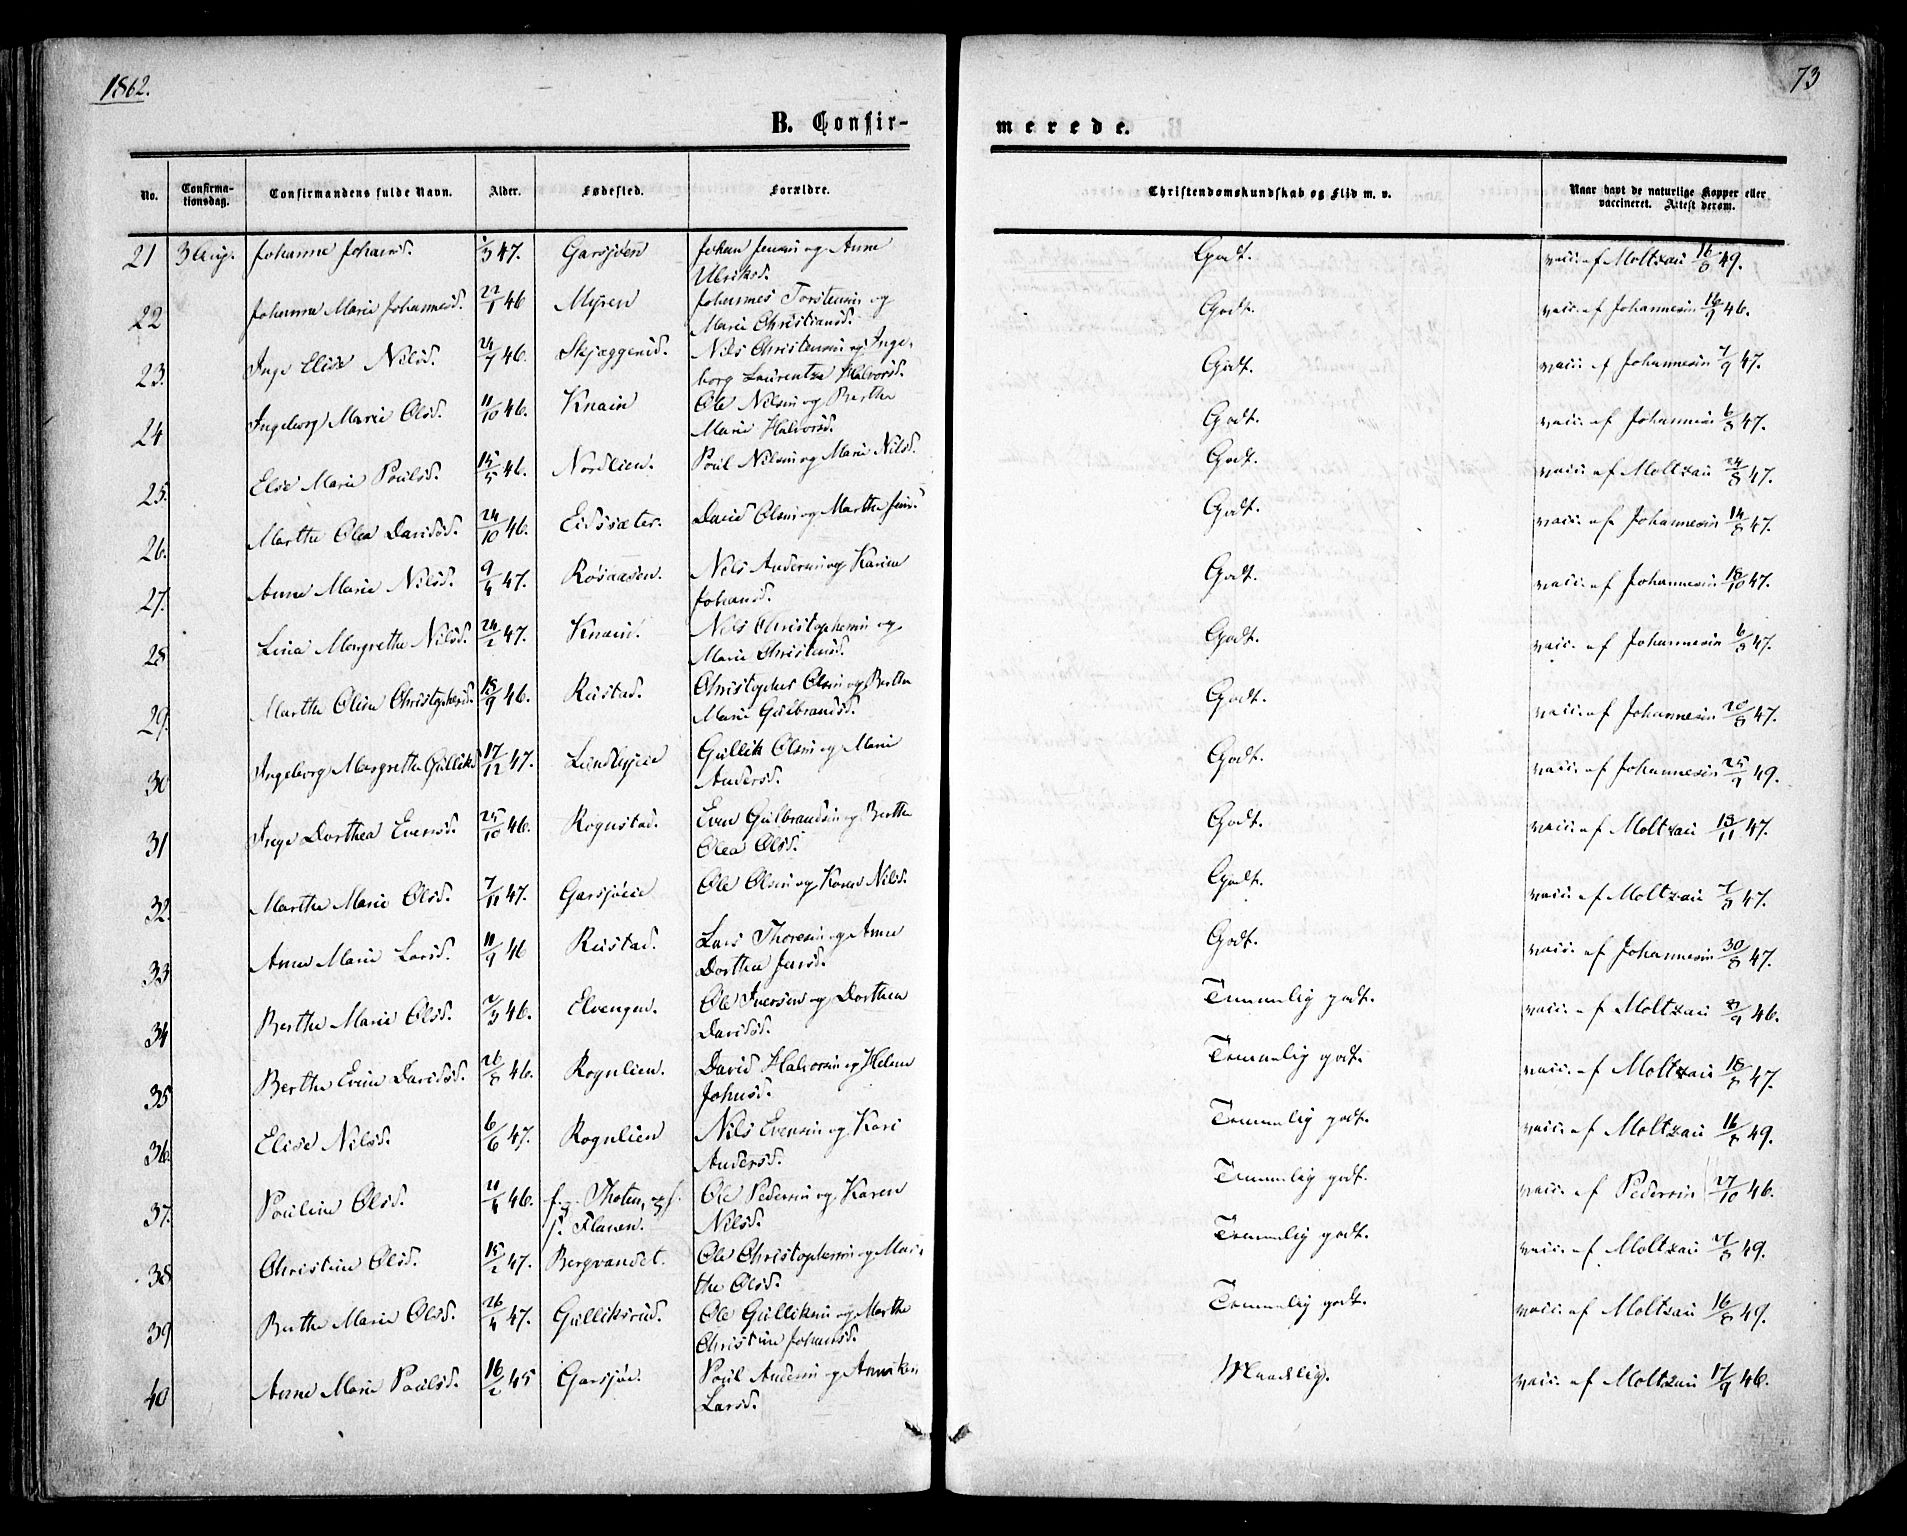 1862.
73
B. Confir-
merede.
No.
Confirma-
tionsdag.
Confirmandens fulde Navn.
Alder.
Fødested.
Forældre.
Christendomskundskab og Flid m. v.
Naar havt de naturlige Kopper eller
vaccineret. Attest derom.
21 3 Aug. Johanne Johansd. 47. Garsjøen Johan Jensen og Anne Godt. vacc. af Moltzau 16/8 49.
Ulriksd.
22 Johanne Marie Johannesd. 46 Myren Johannes Torstensen og Godt. vacc. af Johannesen 16/9 46.
Marie Christiansd.
23. Inge Elise Nilsd. 24/7 46. Skjæggerud. Nils Christensen og Inge- Godt. vacc. af Johannesen 7/9 47.
borg Laurentze Halvorsd.
24 Ingeborg Marie Olsd. 11/10 46. Knain Ole Nilsen og Berthe Godt. vacc. af Johannesen 6/8 47.
Marie Halvorsd.
25. Elise Marie Poulsd. 15/5 46. Nordlien. Poul Nilsen og Marie Nilsd. Godt. vacc. af Moltzau 24/8 47.
26. Marthe Olea Davidsd. 24/10 46. Eidssæter. David Olsen og Marthe Jensd. Godt. vacc. af Johannesen 14/8 47.
27. Anne Marie Nilsd. 9/4 47. Røsaasen. Nils Andersen og Karine Godt. vacc. af Johannesen 18/10 47.
Johansd.
28 Lina Margrethe Nilsd. 24/2 47. Knain. Nils Christophersen og Godt. vacc. af Johannesen 47.
Marie Christensd.
29. Marthe Oline Christophersd. 18/9 46. Rustad. Christopher Olsen og Berthe Godt. vacc. af Johannesen 20/8 47.
Marie Gulbrandsd.
30 Ingeborg Margrethe Gulliksd 17/12 47. Gullik Olsen og Marie Godt. vacc. af Johannesen 25/9 49.
Andersd.
31 Inge Dorthea Evensd. 25/10 46. Rognstad. Even Gulbrandsen og Berthe Godt. vacc. af Moltzau 18/11 47.
Olea Olsd.
32. Marthe Marie Olsd. 7/11 47. Garsjøeie Ole Olsen og Karen Nilsd. Godt. vacc. af Moltzau 47.
33 Anne Marie Larsd. 11/9 46 Rustad. Lars Thoresen og Anne Godt. vacc. af Johannesen 30/8 47.
Dorthea Jensd.
34 Berthe Marie Olsd. 46. Elvengen. Ole Iversen og Dorthea Temmelig godt. vacc. af Moltzau 46.
Davidsd.
35 Berthe Evine Davidsd. 26/8 46. Rognlien. David Halvorsen og Helene Temmelig godt. vacc. af Moltzau 18/8 47.
Johnsd.
36. Elise Nilsd. 6/6 47. Rognlien Nils Evensen og Kari Temmelig godt. vacc. af Moltzau 16/8 49.
Andersd.
37. Pouline Olsd. 46. f. p. Thoten, og f. Ole Pedersen og Karen Temmelig godt. vacc. af Pedersen 27/10 46.
p. Flanen. Nilsd.
38 Christine Olsd. 15/2 47. Bergvandet. Ole Christophersen og Mar- Temmelig godt. vacc. af Moltzau 49.
the Olsd.
39 Berthe Marie Olsd. 26/4 47. Gulliksrud. Ole Gulliksen og Marthe Temmelig godt. vacc. af Moltzau 16/8 49.
Christine Johansd.
40 Anne Marie Poulsd. 16/2 45 Garsjøe. Poul Andersen og Anniken Maadelig. vacc. af Moltzau 17/9 46.
Larsd.